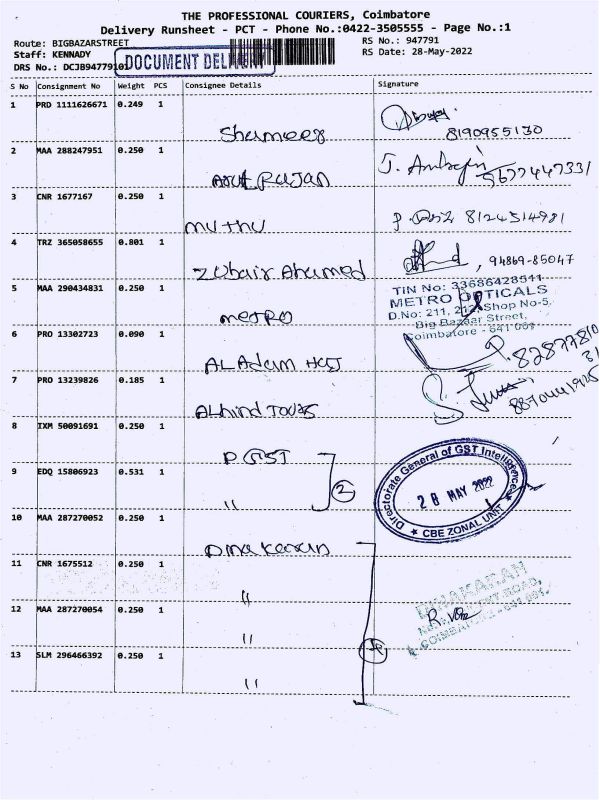 THE PROFESSIONAL COURIERS, Coimbatore
Delivery Runsheet - PCT - Phone No.:0422-3505555 - Page No.:1
Route: BIGBAZARSTREET
RS No.: 947791
Staff: KENNADY
RS Date: 28-May-2022
DRS No.: DCJB947791
DOCUMENT DELIVERY
S No Consignment No Weight PCS Consignee Details Signature
1 PRD 1111626671 0.249 1
Shameer
8190955130
2 MAA 288247951 0.250 1
Arul Rajan
J.
3 CNR 1677167 0.250 1
muthu
P. 8124514981
4 TRZ 365058655 0.801 1
Zubair Ahamed
, 94869-85047
5 MAA 290434831 0.250 1
metro
TIN No: 33686428511
METRO OPTICALS
D.No: 211, 212, Shop No-5,
Big Bazaar Street,
Coimbatore - 641 001
6 PRO 13302723 0.090 1
AL Adam Haj
7 PRO 13239826 0.185 1
Alhind Tours
8 IXM 50091691 0.250 1
DGST
9 EDQ 15806923 0.531 1
"
2
Directorate General of GST Intelligence
28 MAY 2022
★ CBE ZONAL UNIT ★
10 MAA 287270052 0.250 1
Dinakaran
11 CNR 1675512 0.250 1
"
DINAKARAN
12 MAA 287270054 0.250 1
"
COIMBATORE - 641 001.
13 SLM 296466392 0.250 1
"